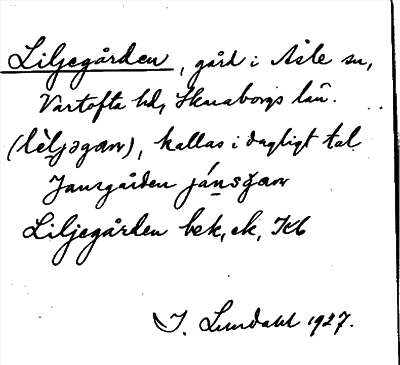 Liljegården, gård i Åsle sn,
Vartofta hd, Skaraborgs län.
(lèljəgaɳ), kallas i dagligt tal
Jansgården jánsgaɳ
Liljegården bek, ek, Kb
I. Lundahl 1927.